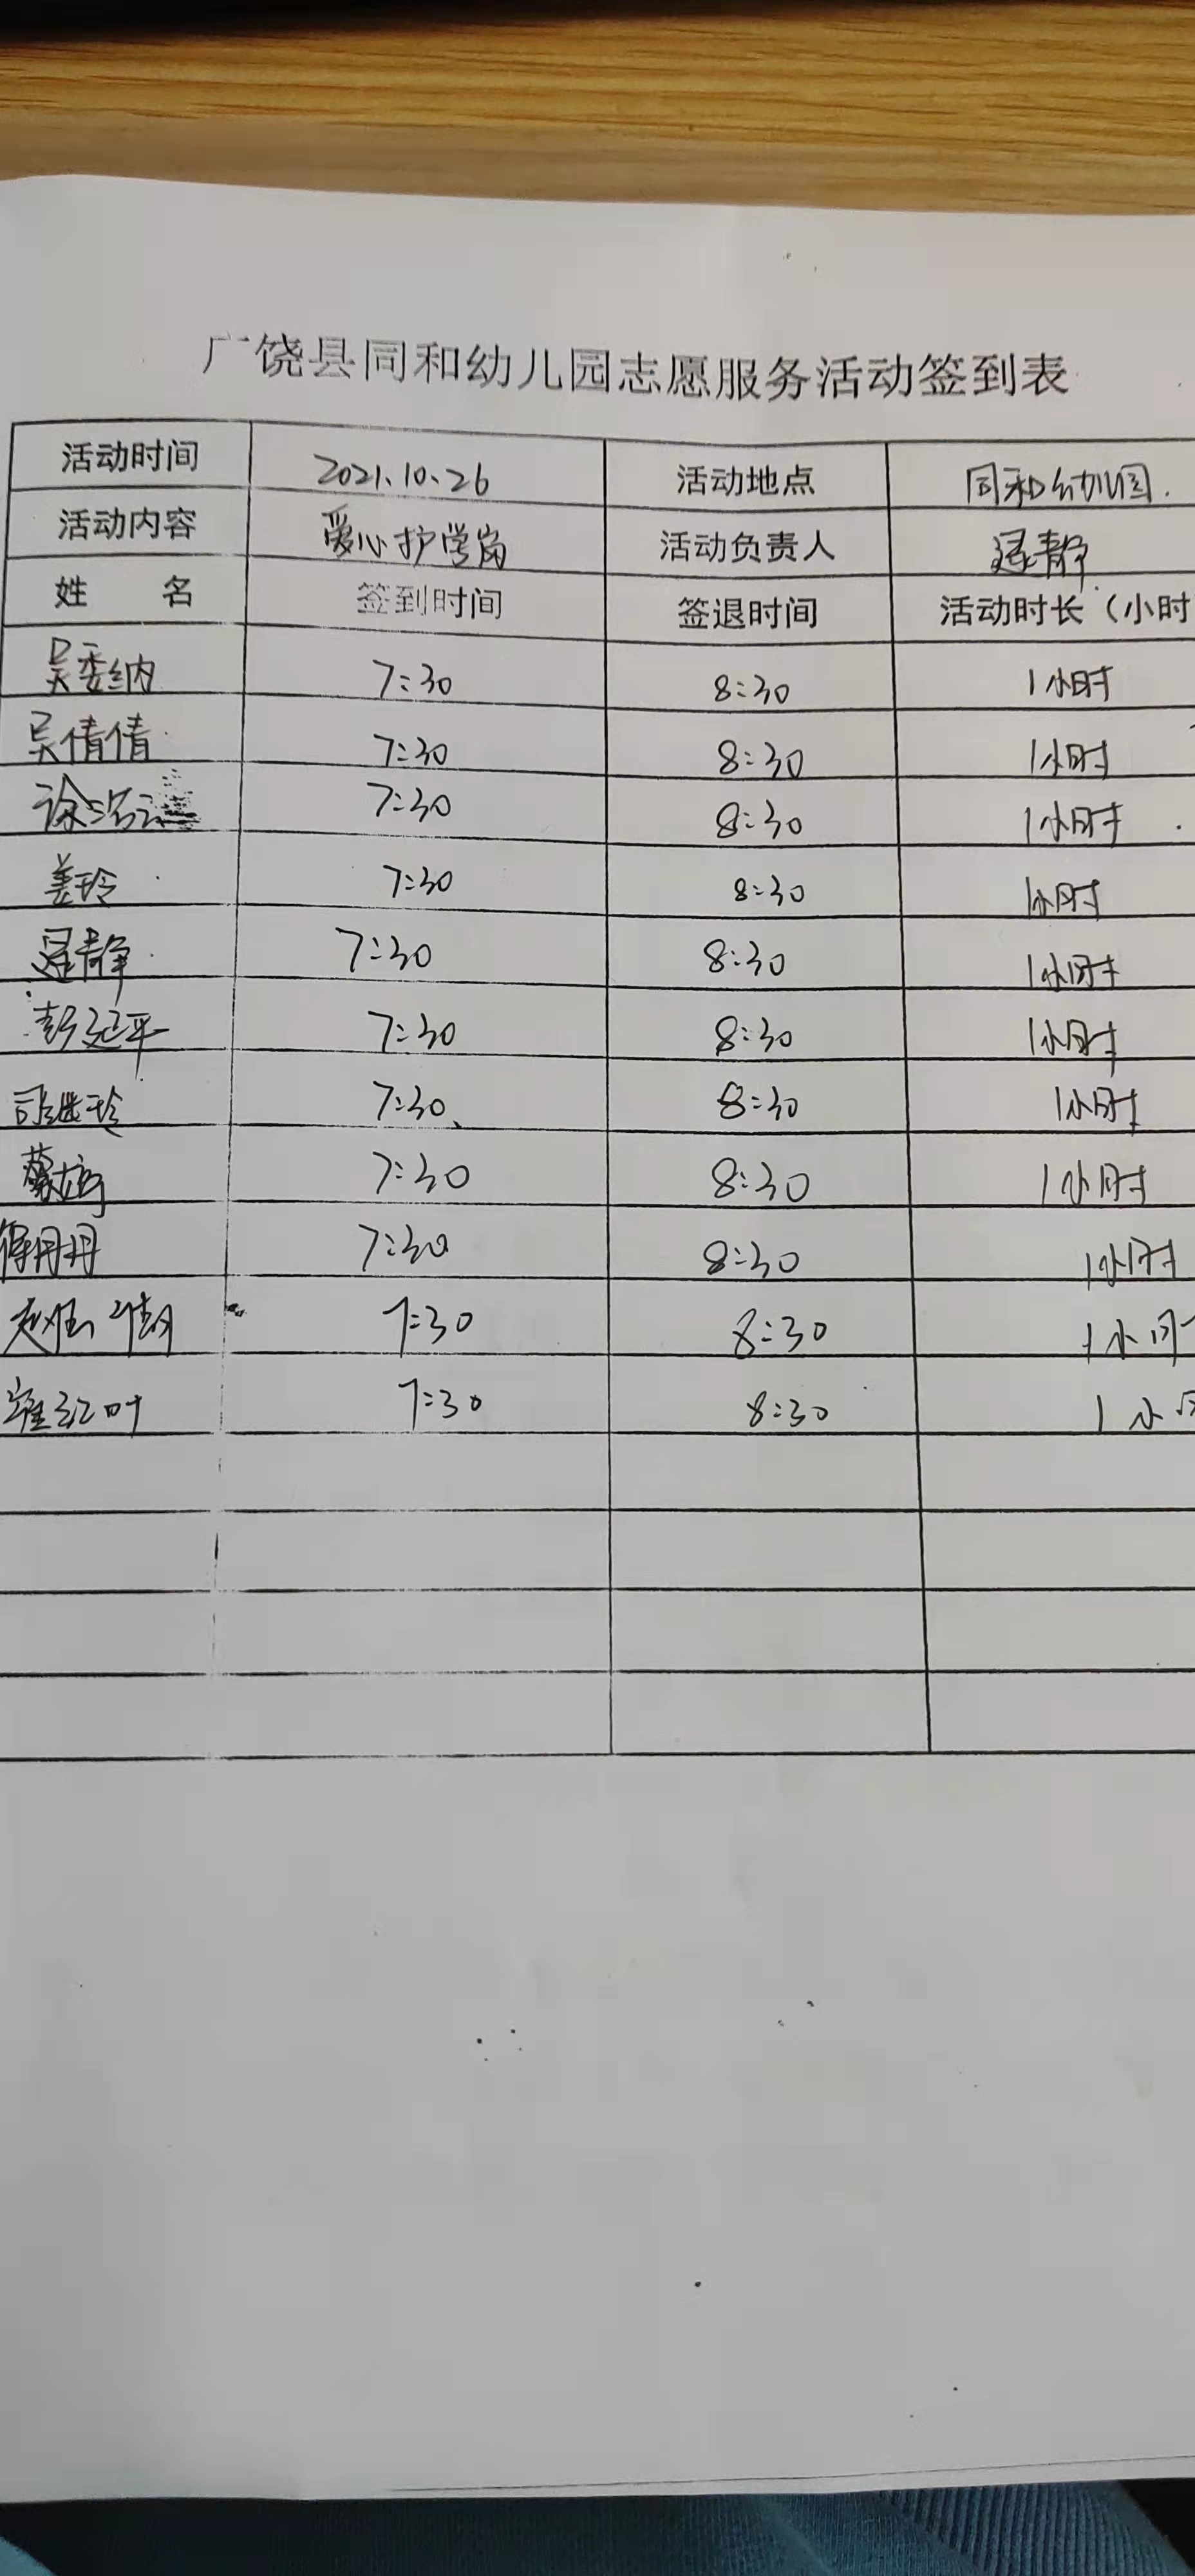 广饶县同和幼儿园志愿服务活动签到表
活动时间 2021.10.26 活动地点 同和幼儿园.
活动内容 爱心护学岗 活动负责人 逯静
姓 名 签到时间 签退时间 活动时长（小时
吴委纳 7:30 8:30 1小时
吴倩倩 7:30 8:30 1小时
徐 7:30 8:30 1小时
姜玲 7:30 8:30 1小时
逯静 7:30 8:30 1小时
彭延平 7:30 8:30 1小时
司继玲 7:30 8:30 1小时
7:30 8:30 1小时
丹丹 7:30 8:30 1小时
赵 7:30 8:30 1小时
崔红叶 7:30 8:30 1小